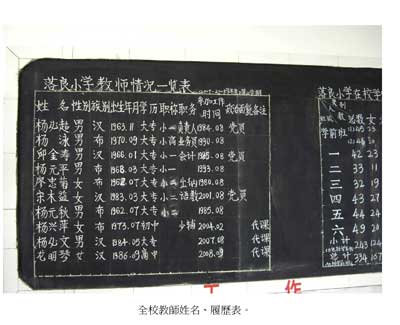 落良小学教师情况一览表
姓名 性别 族别 出生年月 学历 职称 职务 参加工作时间 政治面貌 备注
杨弘超 男 汉 1963.11 大专 小一 负责人 1984.08 党员
杨泳 男 布 1970.09 大专 小高 业务员 1990.08
邱金寿 男 汉 1966.01 大专 小一 会计 1985.08 党员
杨元平 男 布 1968.03 大专 小一 1993.08
廖忠菊 女 布 大专 小二 出纳 1980.08
宋木益 女 汉 1983.03 大专 小二 语教 2001.08 党员
杨元秋 男 布 1962.07 大专 小二 1985.08
杨兴萍 女 布 1973.07 初中 少辅 2004.02 代课
杨弘文 男 汉 1984.05 大专 2007.08 代课
龙明琴 女 汉 1986.09 高中 2008.09 代课
落良小学在校学
类别
总数 女
学前班
一 42 23
二 33 11
三 32 19
四 43 27
五 44 24
六 49 24
小计 243
总计 334 167
工 作
全校教師姓名、履歷表。